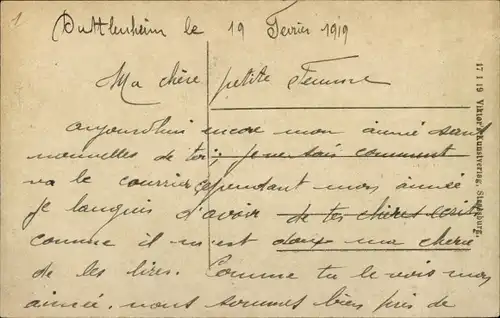 1
Duttlenheim le 19 Fevrier 1919
Ma chère petite Femme
aujourdhui encore mon aimée sans
nouvelles de toi: je ne sais comment
va le courrier cependant mon aimée
je languis d'avoir de tes chères
comme il m'est doux ma cherie
de les lires. Comme tu le vois mon
aimée. nous sommes bien près de
17 1 19 Viktor Kunstverlag, Strassburg.